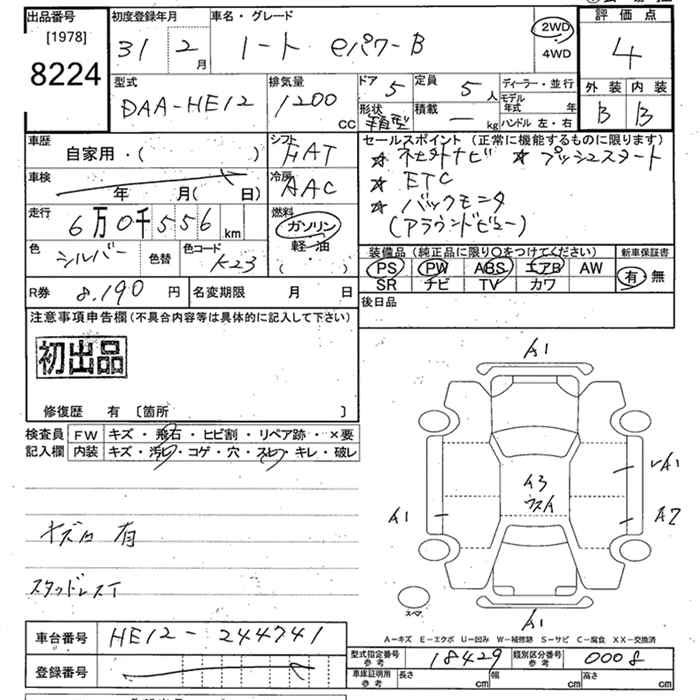 出品番号
[1978]
8224
初度登録年月
31 2 月
車名・グレード
ノート eパワーB
2WD
4WD
評価点
4
型式
DAA-HE12
排気量
1200 CC
ドア 5
定員 5 人
形状 箱型
積載 ー kg
ディーラー・並行
モデル年式 年
ハンドル 左・右
外装 内装
B B
車歴
自家用・( )
シフト
FAT
車検
年 月( 日)
冷房
AAC
走行
6万0千556 km
燃料
ガソリン
軽油
( ・ )
色
シルバー
色替
色コード
K23
セールスポイント (正常に機能するものに限ります)
☆ 社外ナビ ☆ プッシュスタート
☆ ETC
☆ バックモニタ
(アラウンドビュー)
装備品 (純正品に限り○をつけてください)
PS PW ABS エアB AW
SR ナビ TV カワ
新車保証書
有 無
R券 8,190 円
名変期限 月 日
後日品
注意事項申告欄 (不具合内容等は具体的に記入して下さい)
初出品
修復歴 有 〔箇所 〕
検査員記入欄
FW キズ・飛石・ヒビ割・リペア跡・×要
内装 キズ・汚レ・コゲ・穴・スレ・キレ・破レ
有
スタッドレスT
A1
A1
A3
A1
A2
A1
スペア
A-キズ E-エクボ U-凹み W-補修跡 S-サビ C-腐食 XX-交換済
車台番号
HE12-244741
登録番号
型式指定番号 参考
18429
類別区分番号 参考
0008
車庫証明用 参考
長さ cm 幅 cm 高さ cm